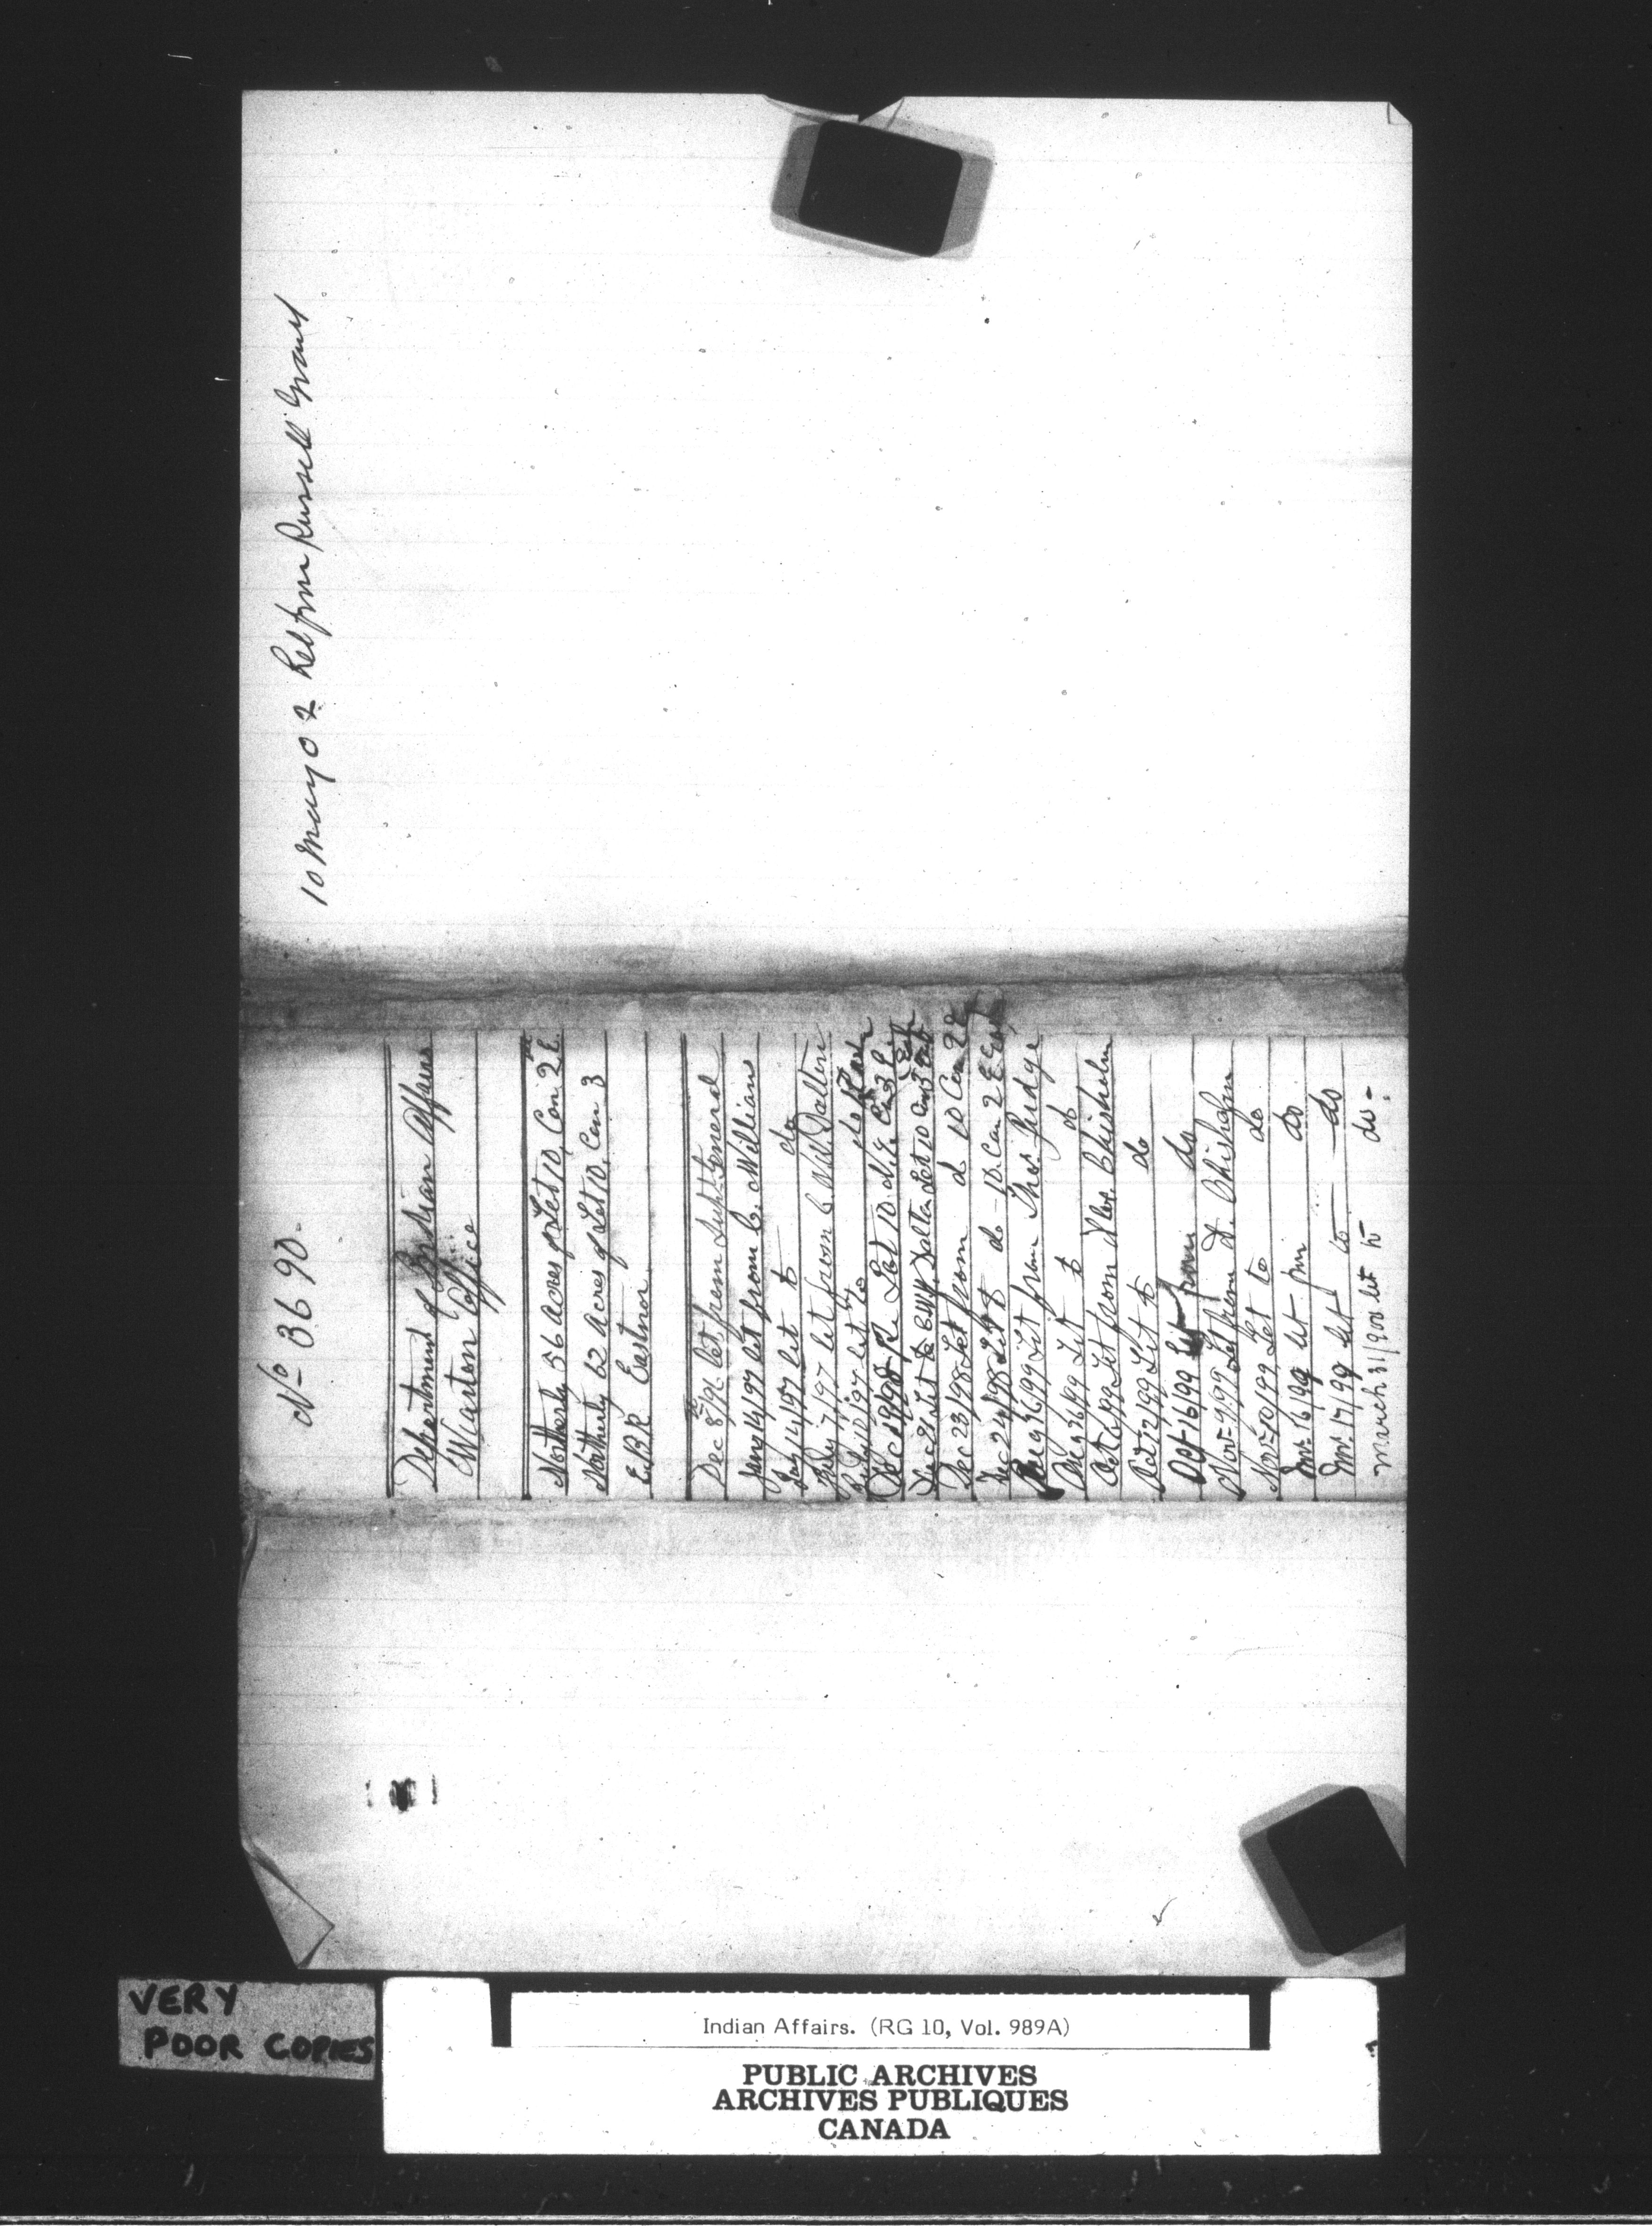 No 3690
Department of Indian Affairs
Wiarton Office
Northerly 56 Acres of Lot 10, Con 2 E.
Northerly 52 Acres of Lot 10, Con 3
E.B.R Eastnor
Dec 8/96 let from Supt General
Jany 14/97 let from C. Williams
Jany 14/97 let to do
July 7/97 let from C W Dalton
July 10/97 let to do
Dec 19/98 Re Lot 10 Con 3 E
Let to Dalton Lot 10 Con 3
Dec 23/98 Let from do 10 Con 2 E
Dec 24/98 Let do 10 Con 2 E
Aug 26/99 Let from Thos. Judge
Aug 26/99 Let to do
Oct 6/99 Let from Alex. Chisholm
Oct 12/99 Let to do
Oct 16/99 Let from do
Nov 9/99 Let from A. Chisholm
Nov 10/99 Let to do
Nov. 16/99 let from do
Nov. 17/99 let to do
March 31/900 let to do-
10 May 02 Let from Russell Grant
VERY
POOR COPIES
Indian Affairs. (RG 10, Vol. 989A)
PUBLIC ARCHIVES
ARCHIVES PUBLIQUES
CANADA